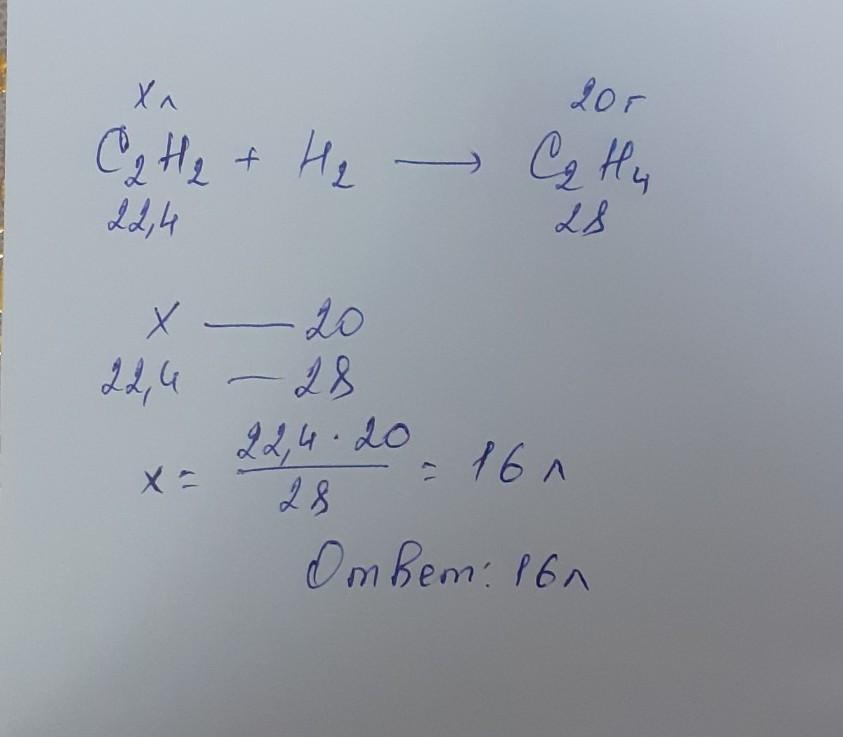 x л 20 г
C₂H₂ + H₂ ⟶ C₂H₄
22,4 28
x — 20
22,4 — 28
x = 22,4 · 20 / 28 = 16 л
Ответ: 16 л